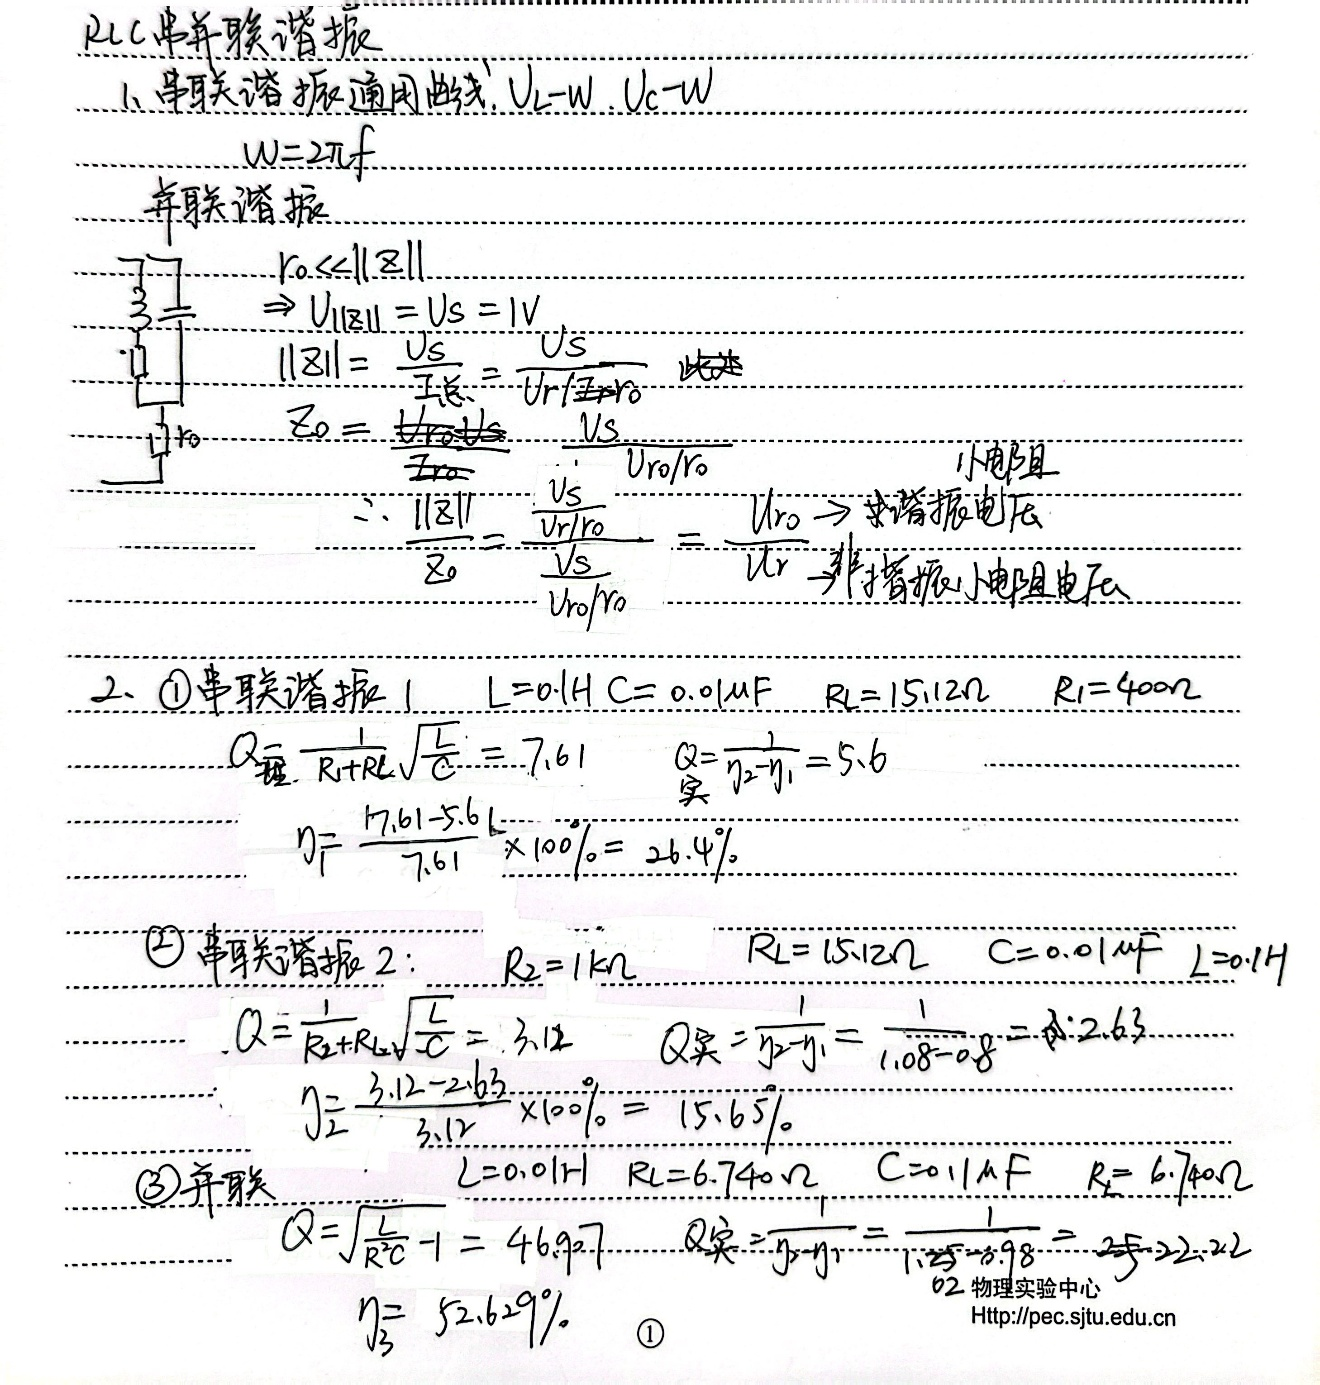 RLC串并联谐振
1、串联谐振通用曲线, UL-W . UC-W
W=2πf
并联谐振
r0<<||Z||
⇒ U||Z|| = US = 1V
||Z|| = US/I总 = US/(Ur/r0)
Z0 = US/(Ur0/r0)
r0
小电阻
∴ ||Z||/Z0 = (US/(Ur/r0))/(US/(Ur0/r0)) = Ur0/Ur → 谐振电压
→ 非谐振小电阻电压
2、①串联谐振1 L=0.1H C=0.01μF RL=15.12Ω R1=400Ω
Q理 = 1/(R1+RL) √(L/C) = 7.61 Q实 = 1/(η2-η1) = 5.6
η1 = (7.61-5.6)/7.61 ×100% = 26.4%
② 串联谐振2: R2=1kΩ RL=15.12Ω C=0.01μF L=0.1H
Q = 1/(R2+RL) √(L/C) = 3.12 Q实 = 1/(η2-η1) = 1/(1.08-0.8) = 2.63
η2 = (3.12-2.63)/3.12 ×100% = 15.65%
③并联 L=0.01H RL=6.740Ω C=0.1μF RL=6.740Ω
Q = √(L/(R²C) -1) = 46.907 Q实 = 1/(η2-η1) = 1/(1.025-0.98) = 22.22
02 物理实验中心
Http://pec.sjtu.edu.cn
η3 = 52.629%
①